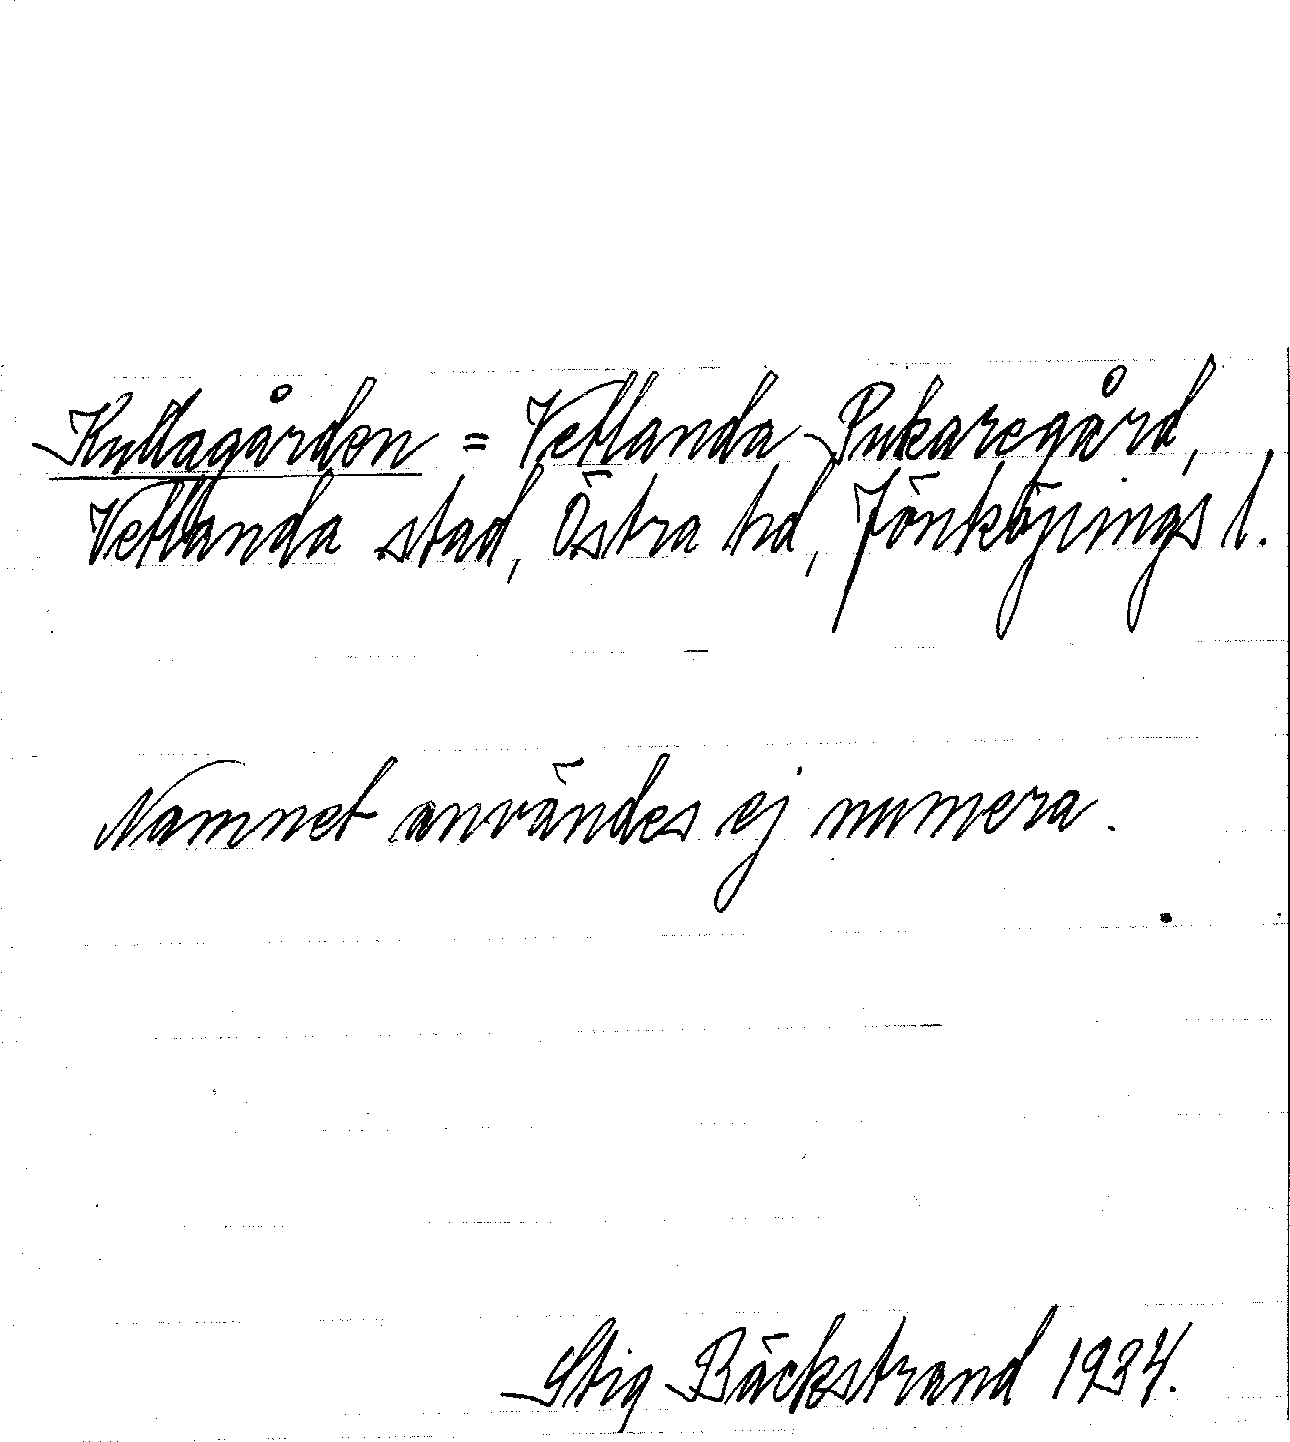 Kullagården = Vetlanda Pukaregård,
Vetlanda stad, Östra hd, Jönköpings l.
Namnet användes ej numera.
Stig Bäckstrand 1934.